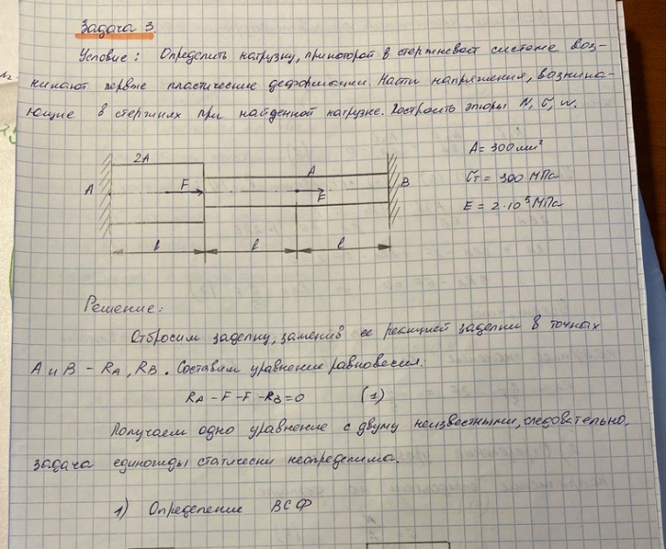 Задача 3.
Условие: Определить нагрузку, при которой в стержневой системе воз-
никают первые пластические деформации. Найти напряжения, возника-
ющие в стержнях при найденной нагрузке. Построить эпюры N, σ, w.
2A
A
A
F
F
B
A = 300 мм²
σт = 300 МПа
E = 2·10⁵ МПа
l
l
l
Решение:
Отбросим заделку, заменив ее реакцией заделки в точках
A и B – RA, RB. Составим уравнение равновесия.
RA – F – F – RB = 0 (1)
Получаем одно уравнение с двумя неизвестными, следовательно,
задача единожды статически неопределима.
1) Определение ВСФ